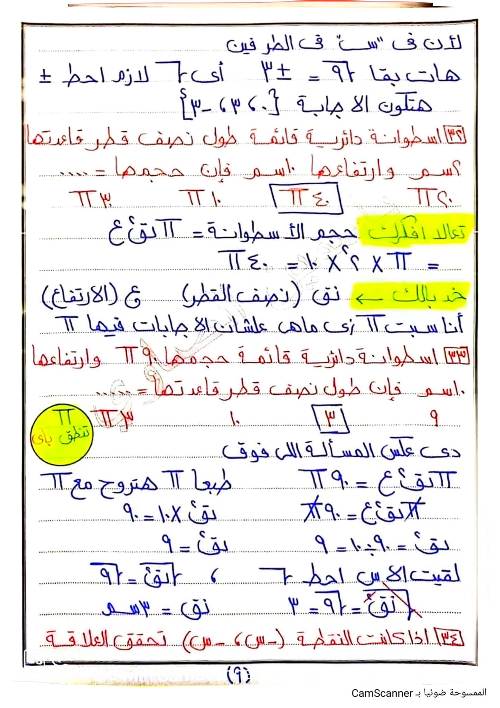 لأن فى "س" فى الطرفين
هات بقا √٩ = ±٣ أى √ لازم احط ±
هتكون الاجابة {٠، ٣، -٣}
٣٢ اسطوانة دائرية قائمة طول نصف قطر قاعدتها
٢سم وارتفاعها ١٠سم فإن حجمها = ....
٢٠π ٤٠π ١٠π ٣٠π
تعالا افكرك حجم الأسطوانة = π نق² ع
= π × ٢² × ١٠ = ٤٠π
خد بالك ← نق (نصف القطر) ع (الارتفاع)
أنا سبت π زى ماهى علشان الاجابات فيها π
٣٣ اسطوانة دائرية قائمة حجمها ٩٠π وارتفاعها
١٠سم فإن طول نصف قطر قاعدتها = .....
٩ ٣ ١٠ ٣π
π تنطق باى
دى عكس المسألة اللى فوق
π نق² ع = ٩٠π طبعا π هتروح مع π
π نق² ع = ٩٠π نق² × ١٠ = ٩٠
نق² = ٩٠ ÷ ١٠ = ٩ نق² = ٩
لقيت الأس احط √ ، √نق² = √٩
√نق² = √٩ = ٣ نق = ٣سم
٣٤ اذا كانت النقطة (-س، -س) تحقق العلاقة
(٩)
الممسوحة ضوئيا بـ CamScanner